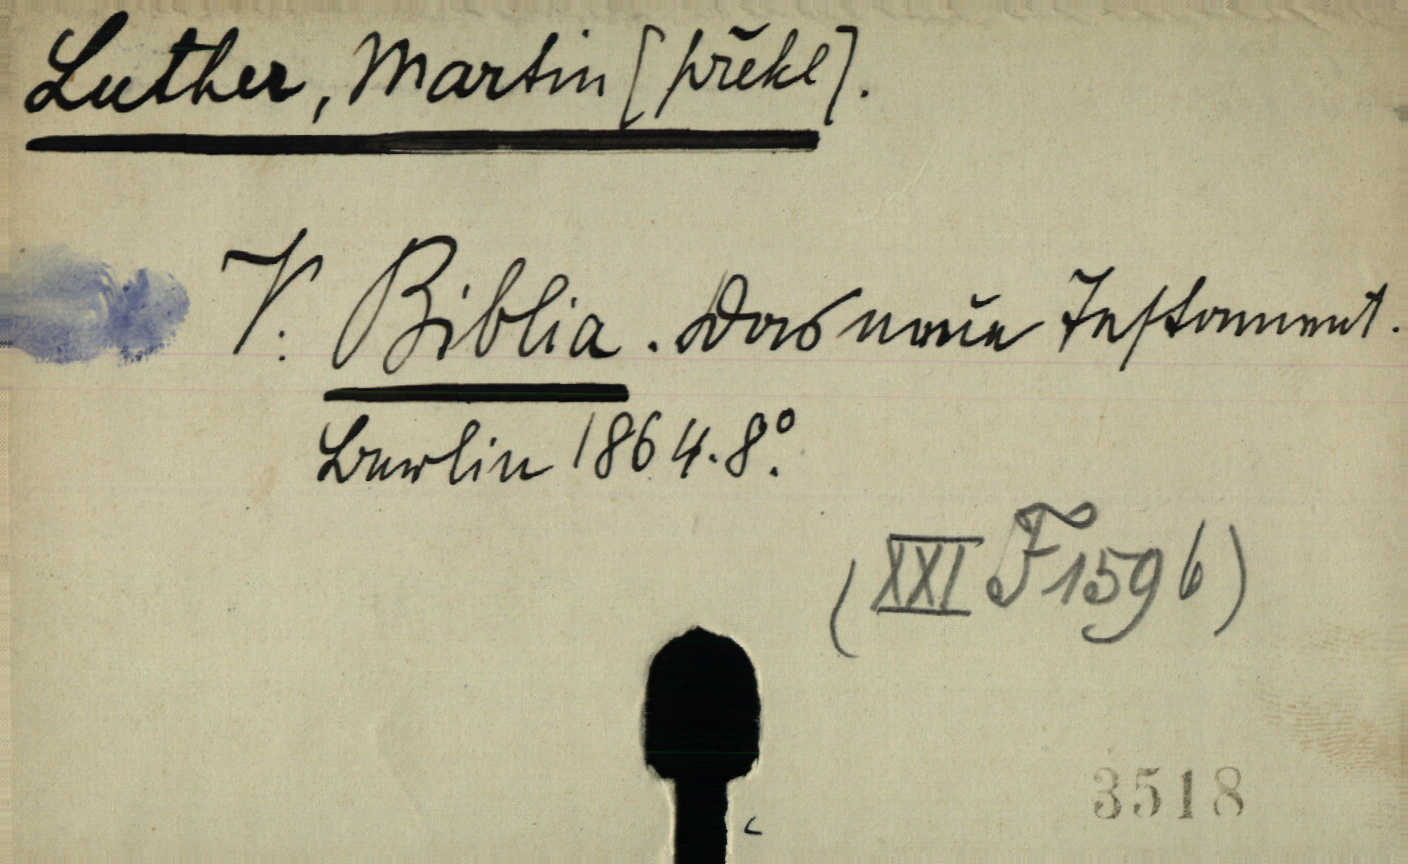 Luther, Martin [překl].
V. Biblia. Das neue Testament.
Berlin 1864. 8°.
(XXI F 159 b)
3518